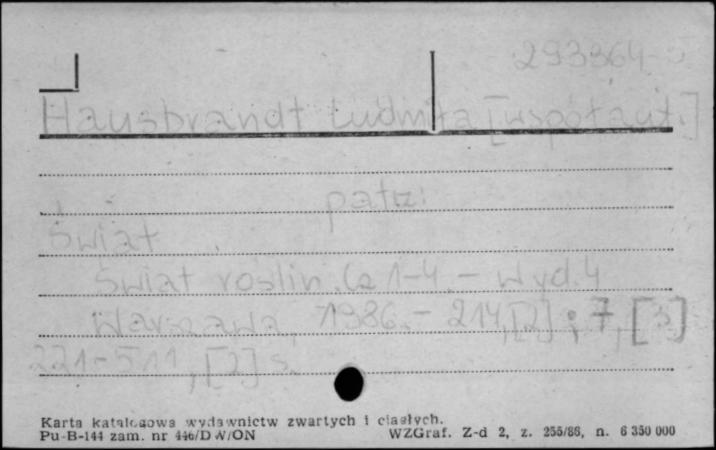 293364-5
Hausbrandt Ludmiła [współaut.]
patrz:
Świat
Świat roślin. Cz 1-4. - Wyd. 4
Warszawa, 1986. - 214, [2] ; 7, [3]
221-511, [2] s.
Karta katalogowa wydawnictw zwartych i ciągłych.
Pu-B-144 zam. nr 446/DW/ON WZGraf. Z-d 2, z. 255/86, n. 6 350 000